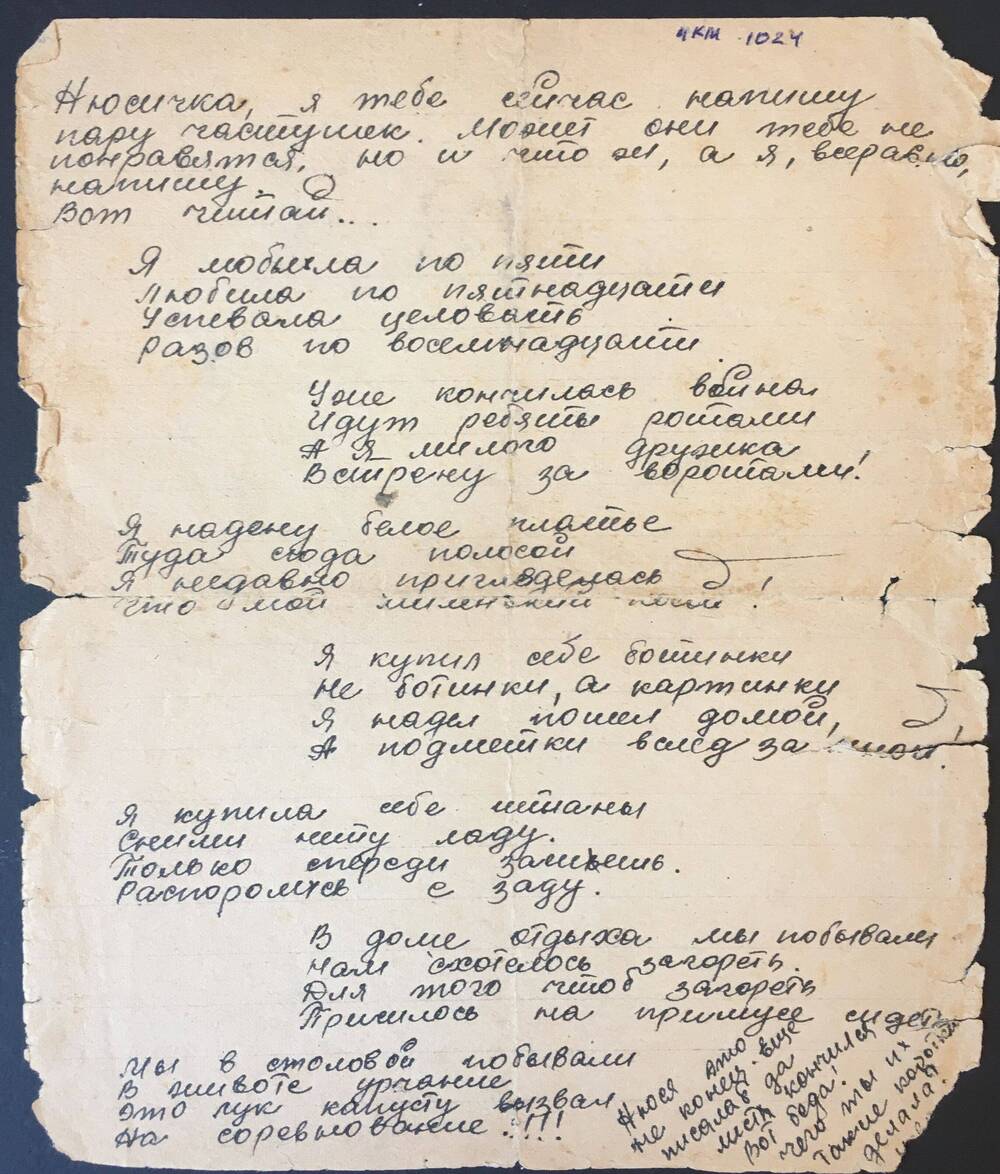 ЧКМ 1024
Нюсичка, я тебе сейчас напишу
пару частушек. Может они тебе не
понравятся, но и что ж, а я, всеравно,
напишу.
Вот читай...
Я любила по пяти
Любила по пятнадцати
Успевала целовать
Разов по восемнадцати.
Уже кончилась война
Идут ребяты ротами
А Я милого дружка
Встрену за воротами!
Я надену белое платье
Туда сюда полосой
Я недавно пригляделась
Что мой миленький !
Я купил себе ботинки
не ботинки, а картинки
Я надел пошел домой,
А подметки вслед за мной!
Я купила себе штаны
Сними нету ладу.
Только спереди зашьешь.
Распоролись с заду.
В доме отдыха мы побывали
Нам схотелось загореть.
Для того чтоб загореть
Пришлось на примусе сидеть
Мы в столовой побывали
В животе урчание
Это лук капусту вызвал
На соревнование!!!!
Нюся это
не конец. Еще
писала б да
лист кончился
Вот беда!
чего ты их
Такие коротки
делала?